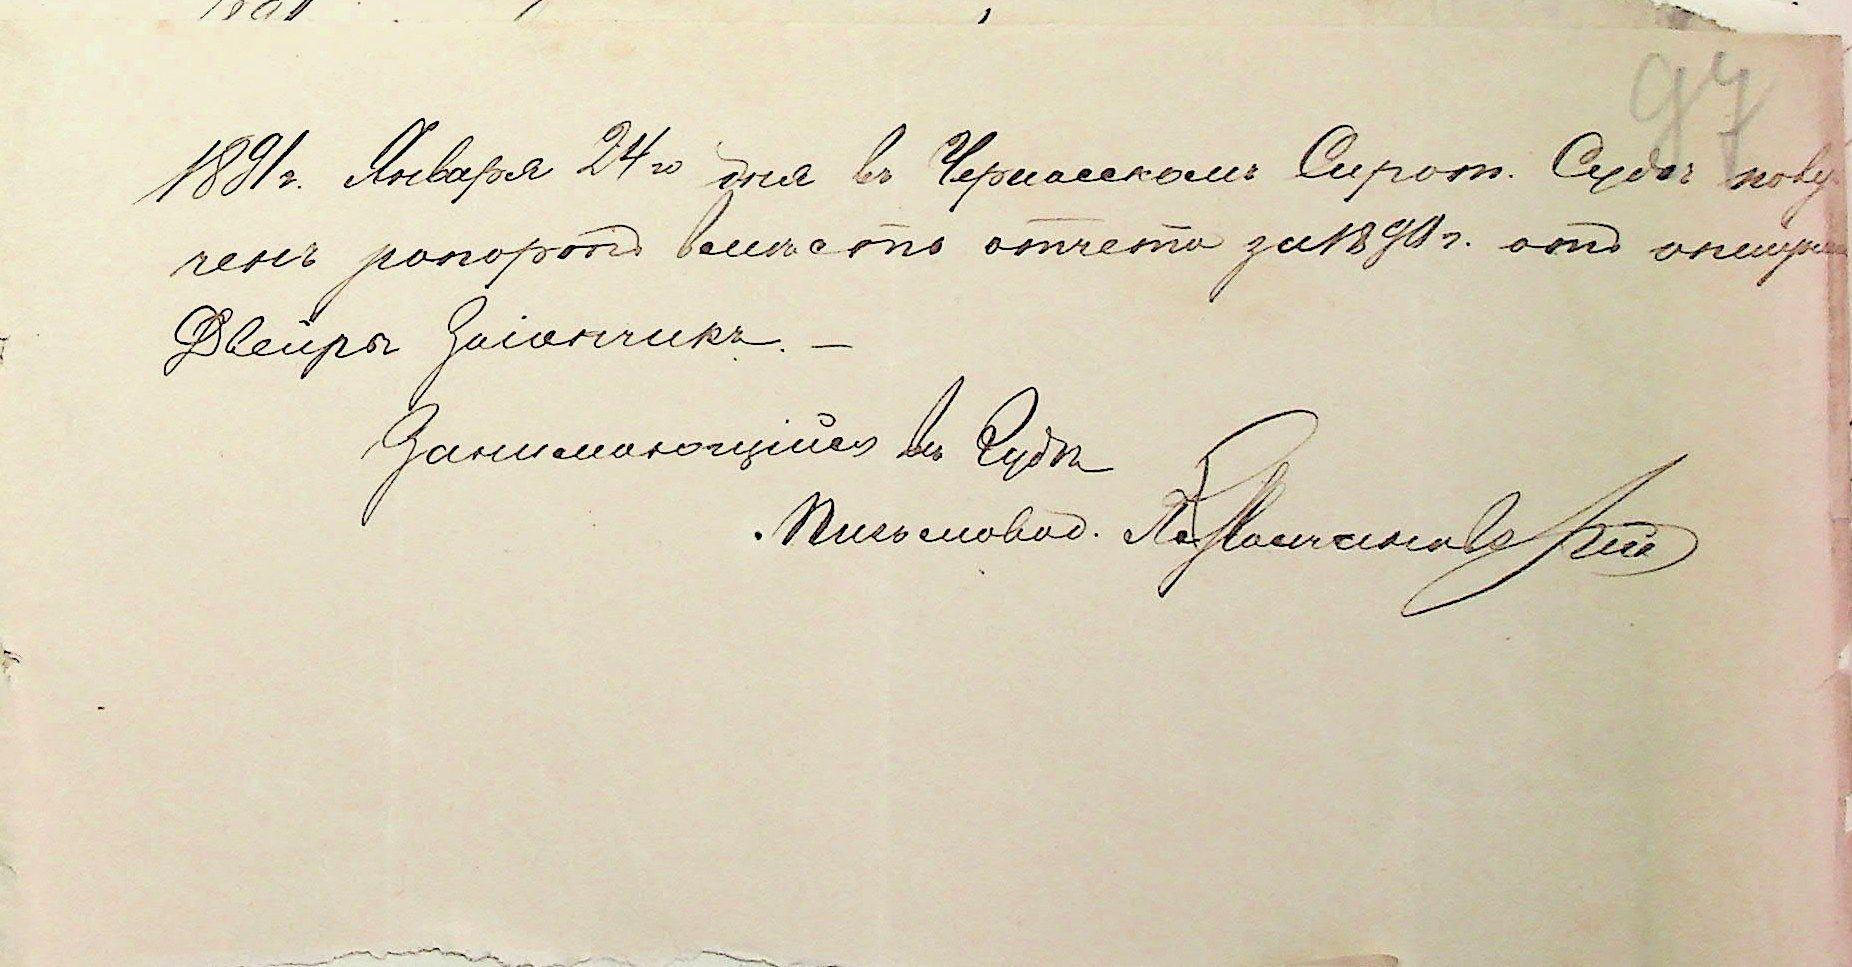 97
1891 г. Января 24 го дня въ Черкасскомъ Сирот. Судѣ полу
ченъ рапортъ вмѣсто отчета за 1890 г. отъ опекунши
Двейры Заіончикъ. —
Занимающійся въ Судѣ
Письмовод.